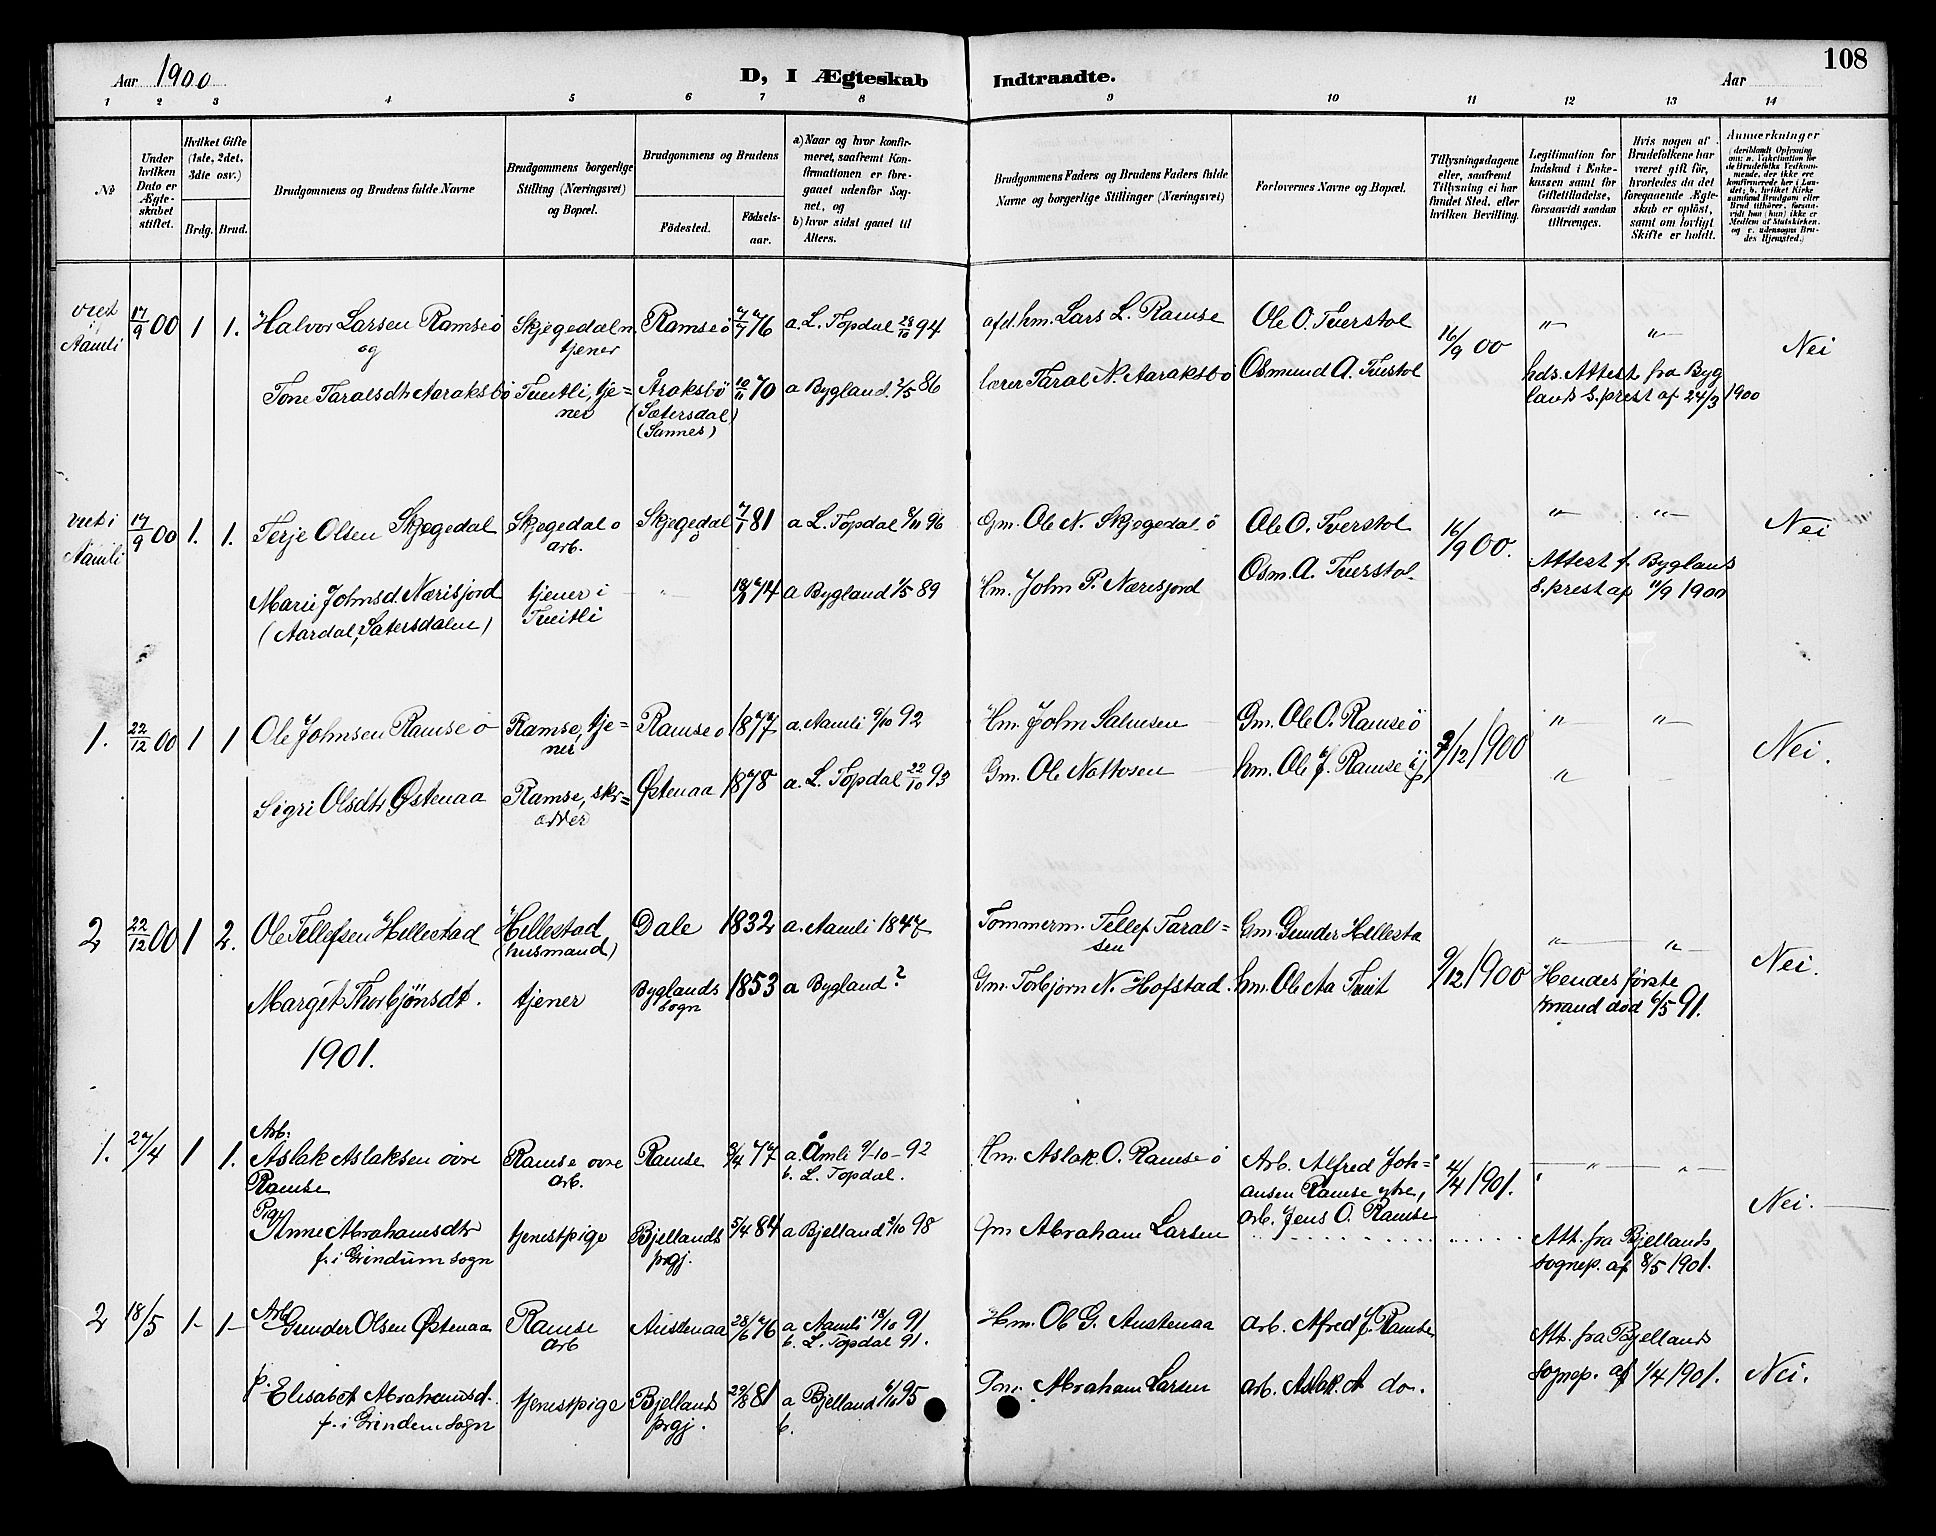 108
Aar 1900
D, I Ægteskab Indtraadte.
Aar
1 2 3 4 5 6 7 8 9 10 11 12 13 14
№
Under hvilken Dato er Ægteskabet stiftet.
Hvilket Gifte (1ste, 2det, 3die osv.)
Brdg. Brud.
Brudgommens og Brudens fulde Navne
Brudgommens borgerlige Stilling (Næringsvei) og Bopæl.
Brudgommens og Brudens
Födested.
Födsels-aar.
a) Naar og hvor konfirmeret, saafremt Konfirmationen er foregaaet udenfor Sognet, og
b) hvor sidst gaaet til Alters.
Brudgommens Faders og Brudens Faders fulde Navne og borgerlige Stillinger (Næringsvei)
Forlovernes Navne og Bopæl.
Tillysningsdagene eller, saafremt Tillysning ei har fundet Sted. efter hvilken Bevilling.
Legitimation for Indskud i Enkekassen samt for Giftetilladelse, forsaavidt saadan tiltrænges.
Hvis nogen af Brudefolkene har været gift för, hvorledes da det foregaaende Ægteskab er oplöst, samt om lovligt Skifte er holdt.
Anmærkninger (deriblandt Oplysning om: a. Vakcination for de Brudefolks Vedkommende, der ikke ere konfirmerede her i Landet; b. hvilket Kirkesamfund Brudgom eller Brud tilhörer, forsaavidt han (hun) ikke er Medlem af Statskirken. og c. udensogns Brudes Hjemsted.)
viet i Aamli 17/9 00 1 1. Halvor Larsen Ramse ö Skjegedal n tjener Ramse ö 7/7 76 a. L. Topdal 28/10 94 afd. hm. Lars L. Ramse Ole O. Tverstøl 16/9 00 " " Nei
og
Tone Taralsdtr Aaraksbö Tveitli, tjener Åraksbö (Sætersdal) (Sannes) 10/11 70 a Bygland 2/5 86 lærer Taral N. Aaraksbö Osmund A. Tverstol hds. Attest fra Byglands S.prest af 24/3 1900
viet i Aamli 17/9 00 1. 1. Terje Olsen Skjegedal Skjegedal o arb. Skjegedal ö 7/1 81 a L. Topdal 8/11 96 Gm. Ole N. Skjegedal ö Ole O. Tverstol 16/9 00. " " Nei
Marie Johnsd. Nærisjord (Aardal, Sætersdalen) tjener i Tveitli " 74 a Bygland 1/5 89 Hm. John P. Nærisjord Osm. A. Tverstol. Attest f. Byglands S.prest af 11/9 1900
1. 22/12 00 1 1 Ole Johnsen Ramse o Ramse, tjener Ramse o 1877 a. Aamli 9/10 92 Hm. John Salvesen Gm. Ole O. Ramse ö /12 1900 " " Nei.
Sigri Olsdtr Østenaa Ramse, skrædder Østenaa 1878 a. L. Topdal 22/10 93 Gm. Ole Nottosen hm. Ole J. Ramse "
2 22/12 00 1 2. Ole Tellefsen Hillestad Hellestad (husmand) Dale 1832 a. Aamli 1847 Tommerm. Tellef Taralsen Gm. Gunder Hellesta 9/12 1900 " " Nei.
Margit Thorbjönsdt. tjener Byglands sogn 1853 a Bygland ? Gm. Torbjørn N. Hofstad. hm. Ole Aa Tveit Hendes første mand død 6/5 91.
1901.
1. 27/4 1 1. Arb: Aslak Aslaksen øvre Ramse Ramse øvre arb. Ramse 9/4 77 a. Åmli 9/10 - 92 b. L. Topdal. Hm. Aslak O. Ramse ö Arb. Alfred Johansen Ramse ytre, arb. Jens O. Ramse 4/4 1901. " " Nei.
Pige Anne Abrahamsdtr f. i Grindum sogn tjenestpige Bjellands prgj. 5/4 84 a Bjelland 2/10 98 Gm Abraham Larsen Att. fra Bjellands sognep. af 8/5 1901.
2 18/5 1- 1- Arb Gunder Olsen Østenaa Ramse arb Austenaa 28/6 76 a Aamli 18/10 91 b. L. Topdal 91. Hm. Ole G. Austenaa arb. Alfred J. Ramse Att. fra Bjellands sognep. af 1/4 1901. Nei.
p. Elisabet Abrahamsd. f. i Grindem sogn tjenestpige Bjellands prgj. 29/8 81 a Bjelland 6/10 95 b. Gm. Abraham Larsen arb. Aslak. A do.